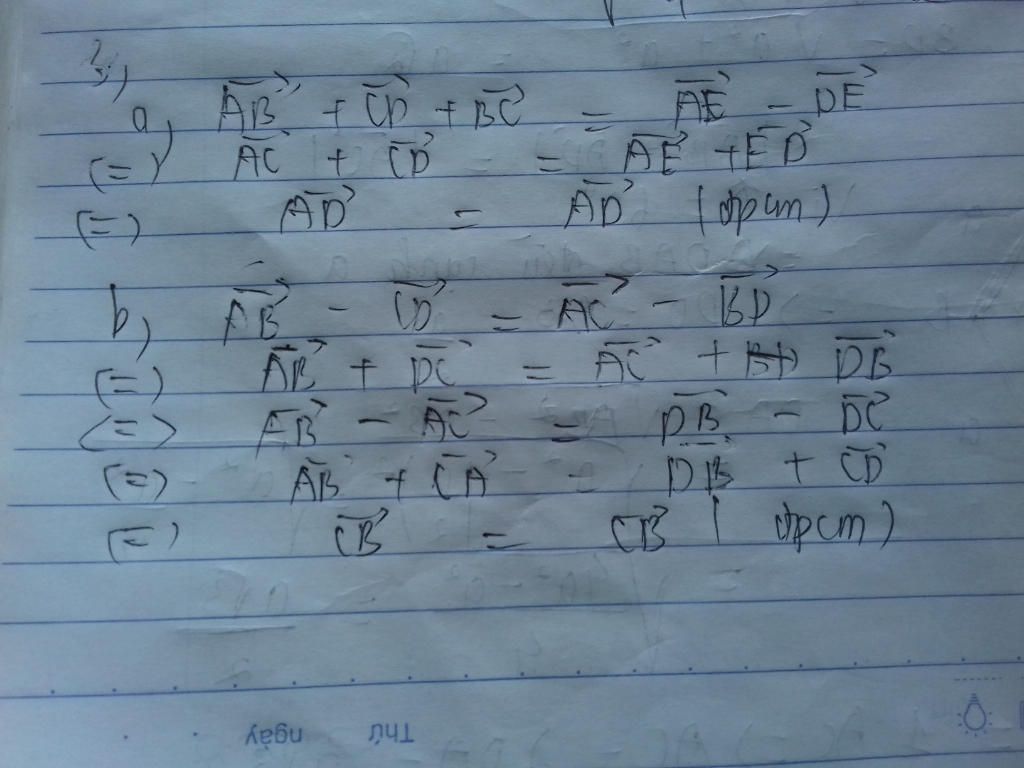 3,
a, $\overrightarrow{AB} + \overrightarrow{CD} + \overrightarrow{BC} = \overrightarrow{AE} - \overrightarrow{DE}$
(=) $\overrightarrow{AC} + \overrightarrow{CD} = \overrightarrow{AE} + \overrightarrow{ED}$
(=) $\overrightarrow{AD} = \overrightarrow{AD}$ (đpcm)
b, $\overrightarrow{AB} - \overrightarrow{CD} = \overrightarrow{AC} - \overrightarrow{BD}$
(=) $\overrightarrow{AB} + \overrightarrow{DC} = \overrightarrow{AC} + \overrightarrow{DB}$
<=> $\overrightarrow{AB} - \overrightarrow{AC} = \overrightarrow{DB} - \overrightarrow{DC}$
(=) $\overrightarrow{AB} + \overrightarrow{CA} = \overrightarrow{DB} + \overrightarrow{CD}$
(=) $\overrightarrow{CB} = \overrightarrow{CB}$ (đpcm)
Thứ ngày